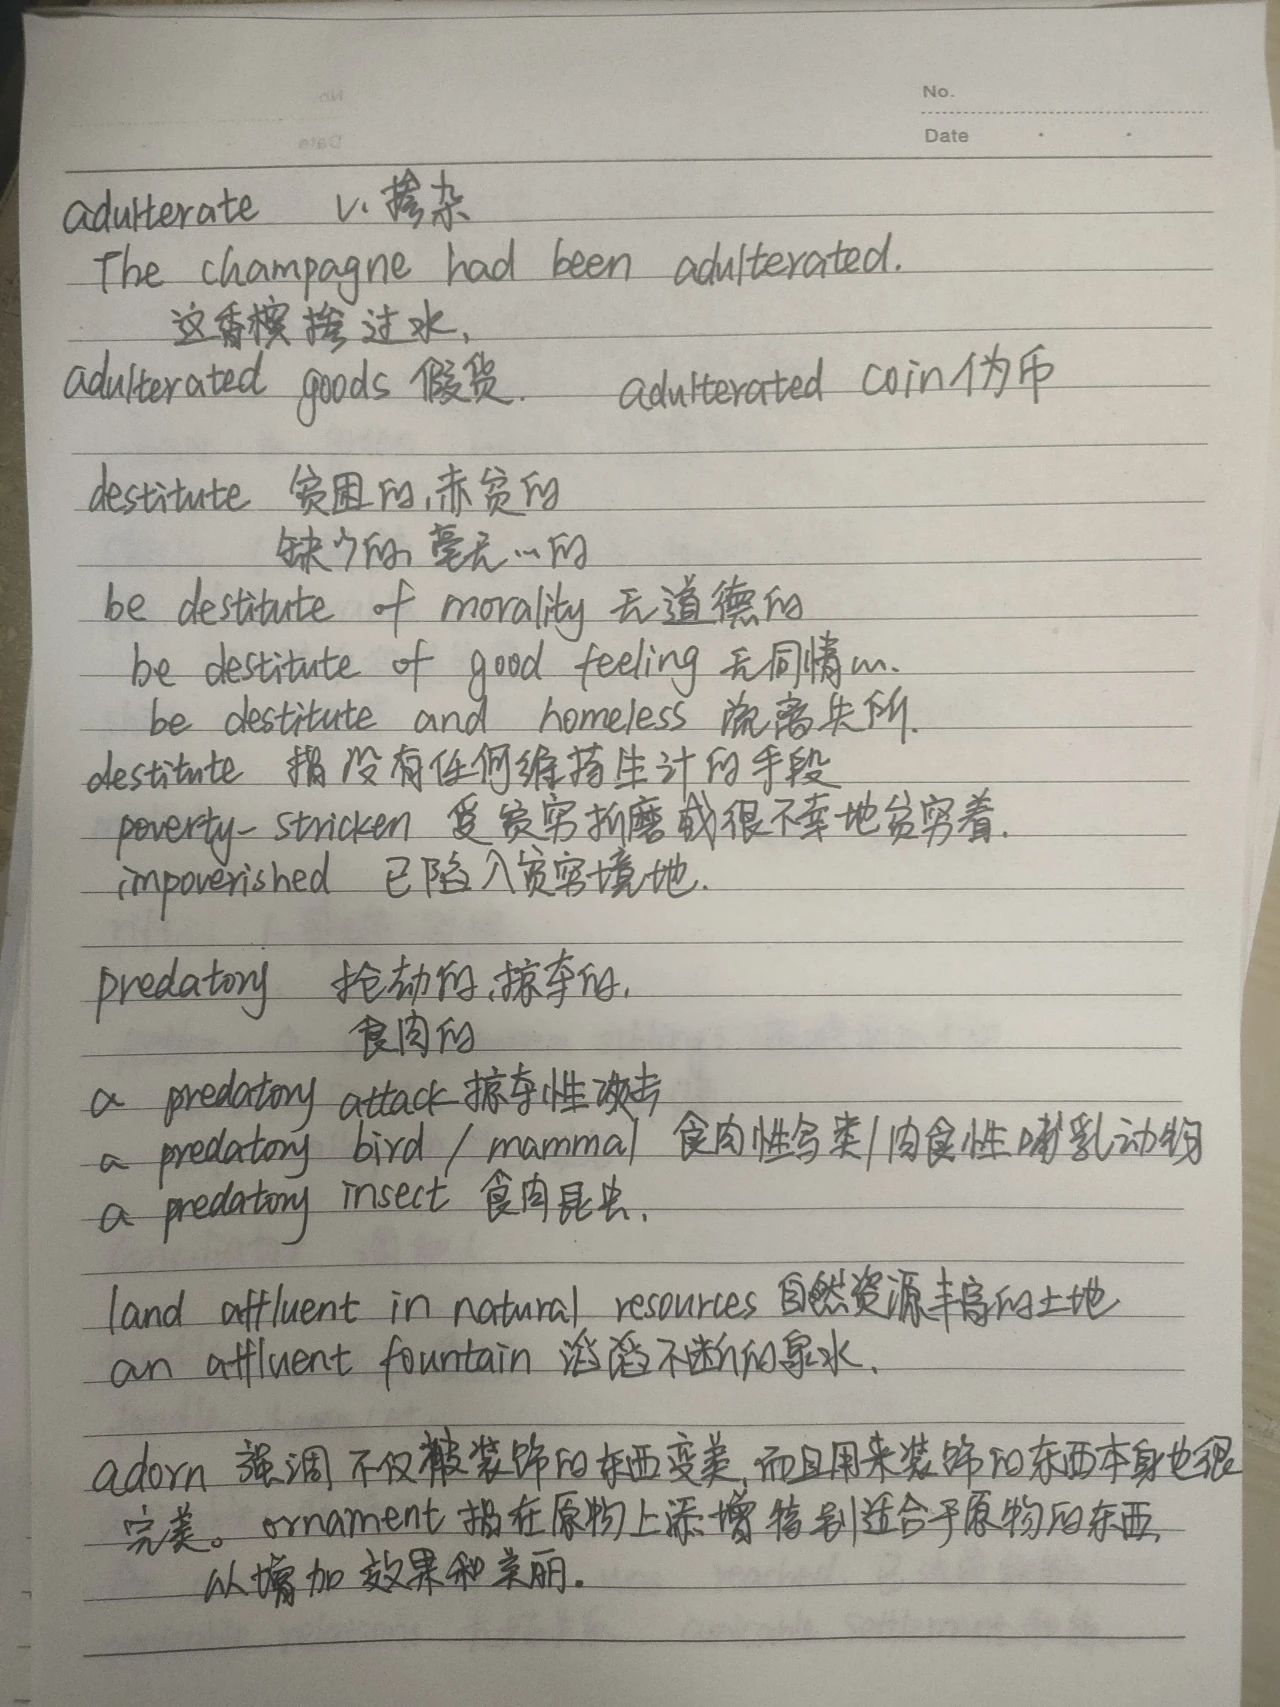 No.
Date
adulterate v. 掺杂
The champagne had been adulterated.
这香槟掺过水.
adulterated goods 假货. adulterated coin 伪币
destitute 贫困的,赤贫的
缺少的,毫无…的
be destitute of morality 无道德的
be destitute of good feeling 无同情心.
be destitute and homeless 流离失所.
destitute 指没有任何维持生计的手段
poverty-stricken 受贫穷折磨或很不幸地贫穷着.
impoverished 已陷入贫穷境地.
predatory 抢劫的,掠夺的,
食肉的
a predatory attack 掠夺性攻击
a predatory bird / mammal 食肉性鸟类/肉食性哺乳动物
a predatory insect 食肉昆虫.
land affluent in natural resources 自然资源丰富的土地
an affluent fountain 滔滔不断的泉水.
adorn 强调不仅被装饰的东西变美,而且用来装饰的东西本身也很
完美。ornament 指在原物上添增特别适合于原物的东西,
以增加效果和美丽.